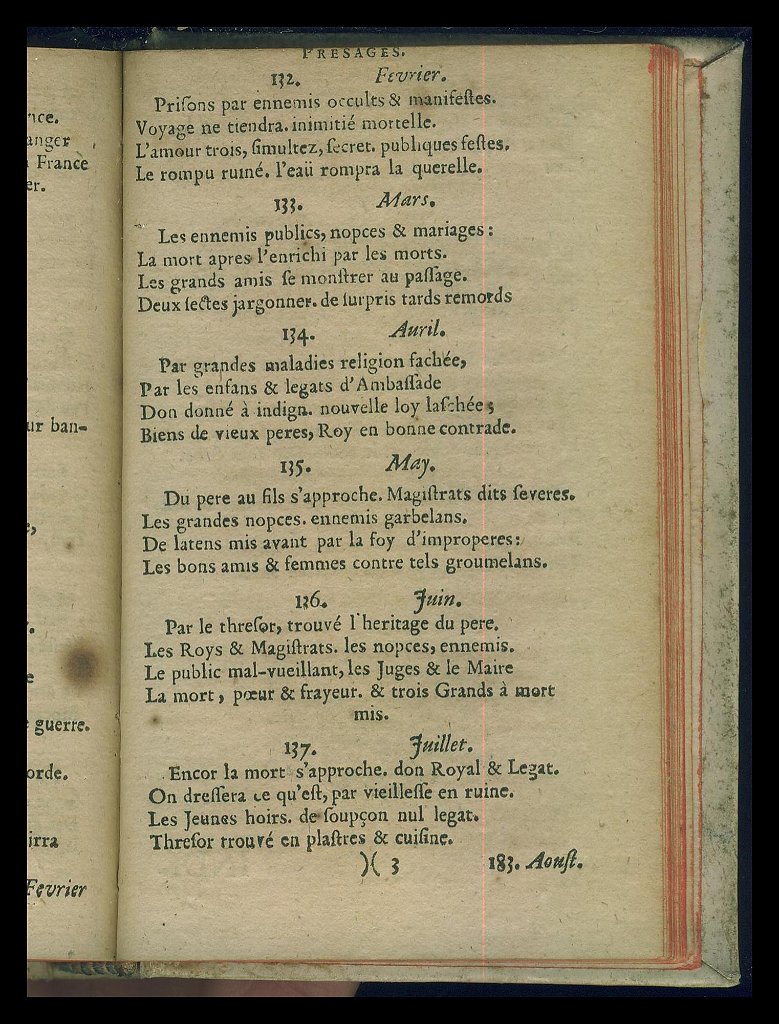 nce.
anger
France
er.
ur ban-
guerre.
orde.
irra
Fevrier
PRESAGES.
132. Fevrier.
Priſons par ennemis occults & manifeſtes.
Voyage ne tiendra. inimitié mortelle.
L'amour trois, ſimultez, ſecret. publiques feſtes,
Le rompu ruiné. l'eau rompra la querelle.
133. Mars.
Les ennemis publics, nopces & mariages:
La mort apres l'enrichi par les morts.
Les grands amis ſe monſtrer au paſſage.
Deux ſectes jargonner. de ſurpris tards remords
134. Auril.
Par grandes maladies religion fachée,
Par les enfans & legats d'Ambaſſade
Don donné à indign. nouvelle loy laſchée;
Biens de vieux peres, Roy en bonne contrade.
135. May.
Du pere au fils s'approche. Magiſtrats dits ſeveres.
Les grandes nopces. ennemis garbelans.
De latens mis avant par la foy d'improperes:
Les bons amis & femmes contre tels groumelans.
136. Juin.
Par le threſor, trouvé l'heritage du pere.
Les Roys & Magiſtrats. les nopces, ennemis.
Le public mal-vueillant, les Juges & le Maire
La mort, pœur & frayeur. & trois Grands à mort
mis.
137. Juillet.
Encor la mort s'approche. don Royal & Legat.
On dreſſera ce qu'eſt, par vieilleſſe en ruine.
Les Jeunes hoirs. de ſoupçon nul legat.
Threſor trouvé en plaſtres & cuiſine.
)( 3 183. Aouſt.